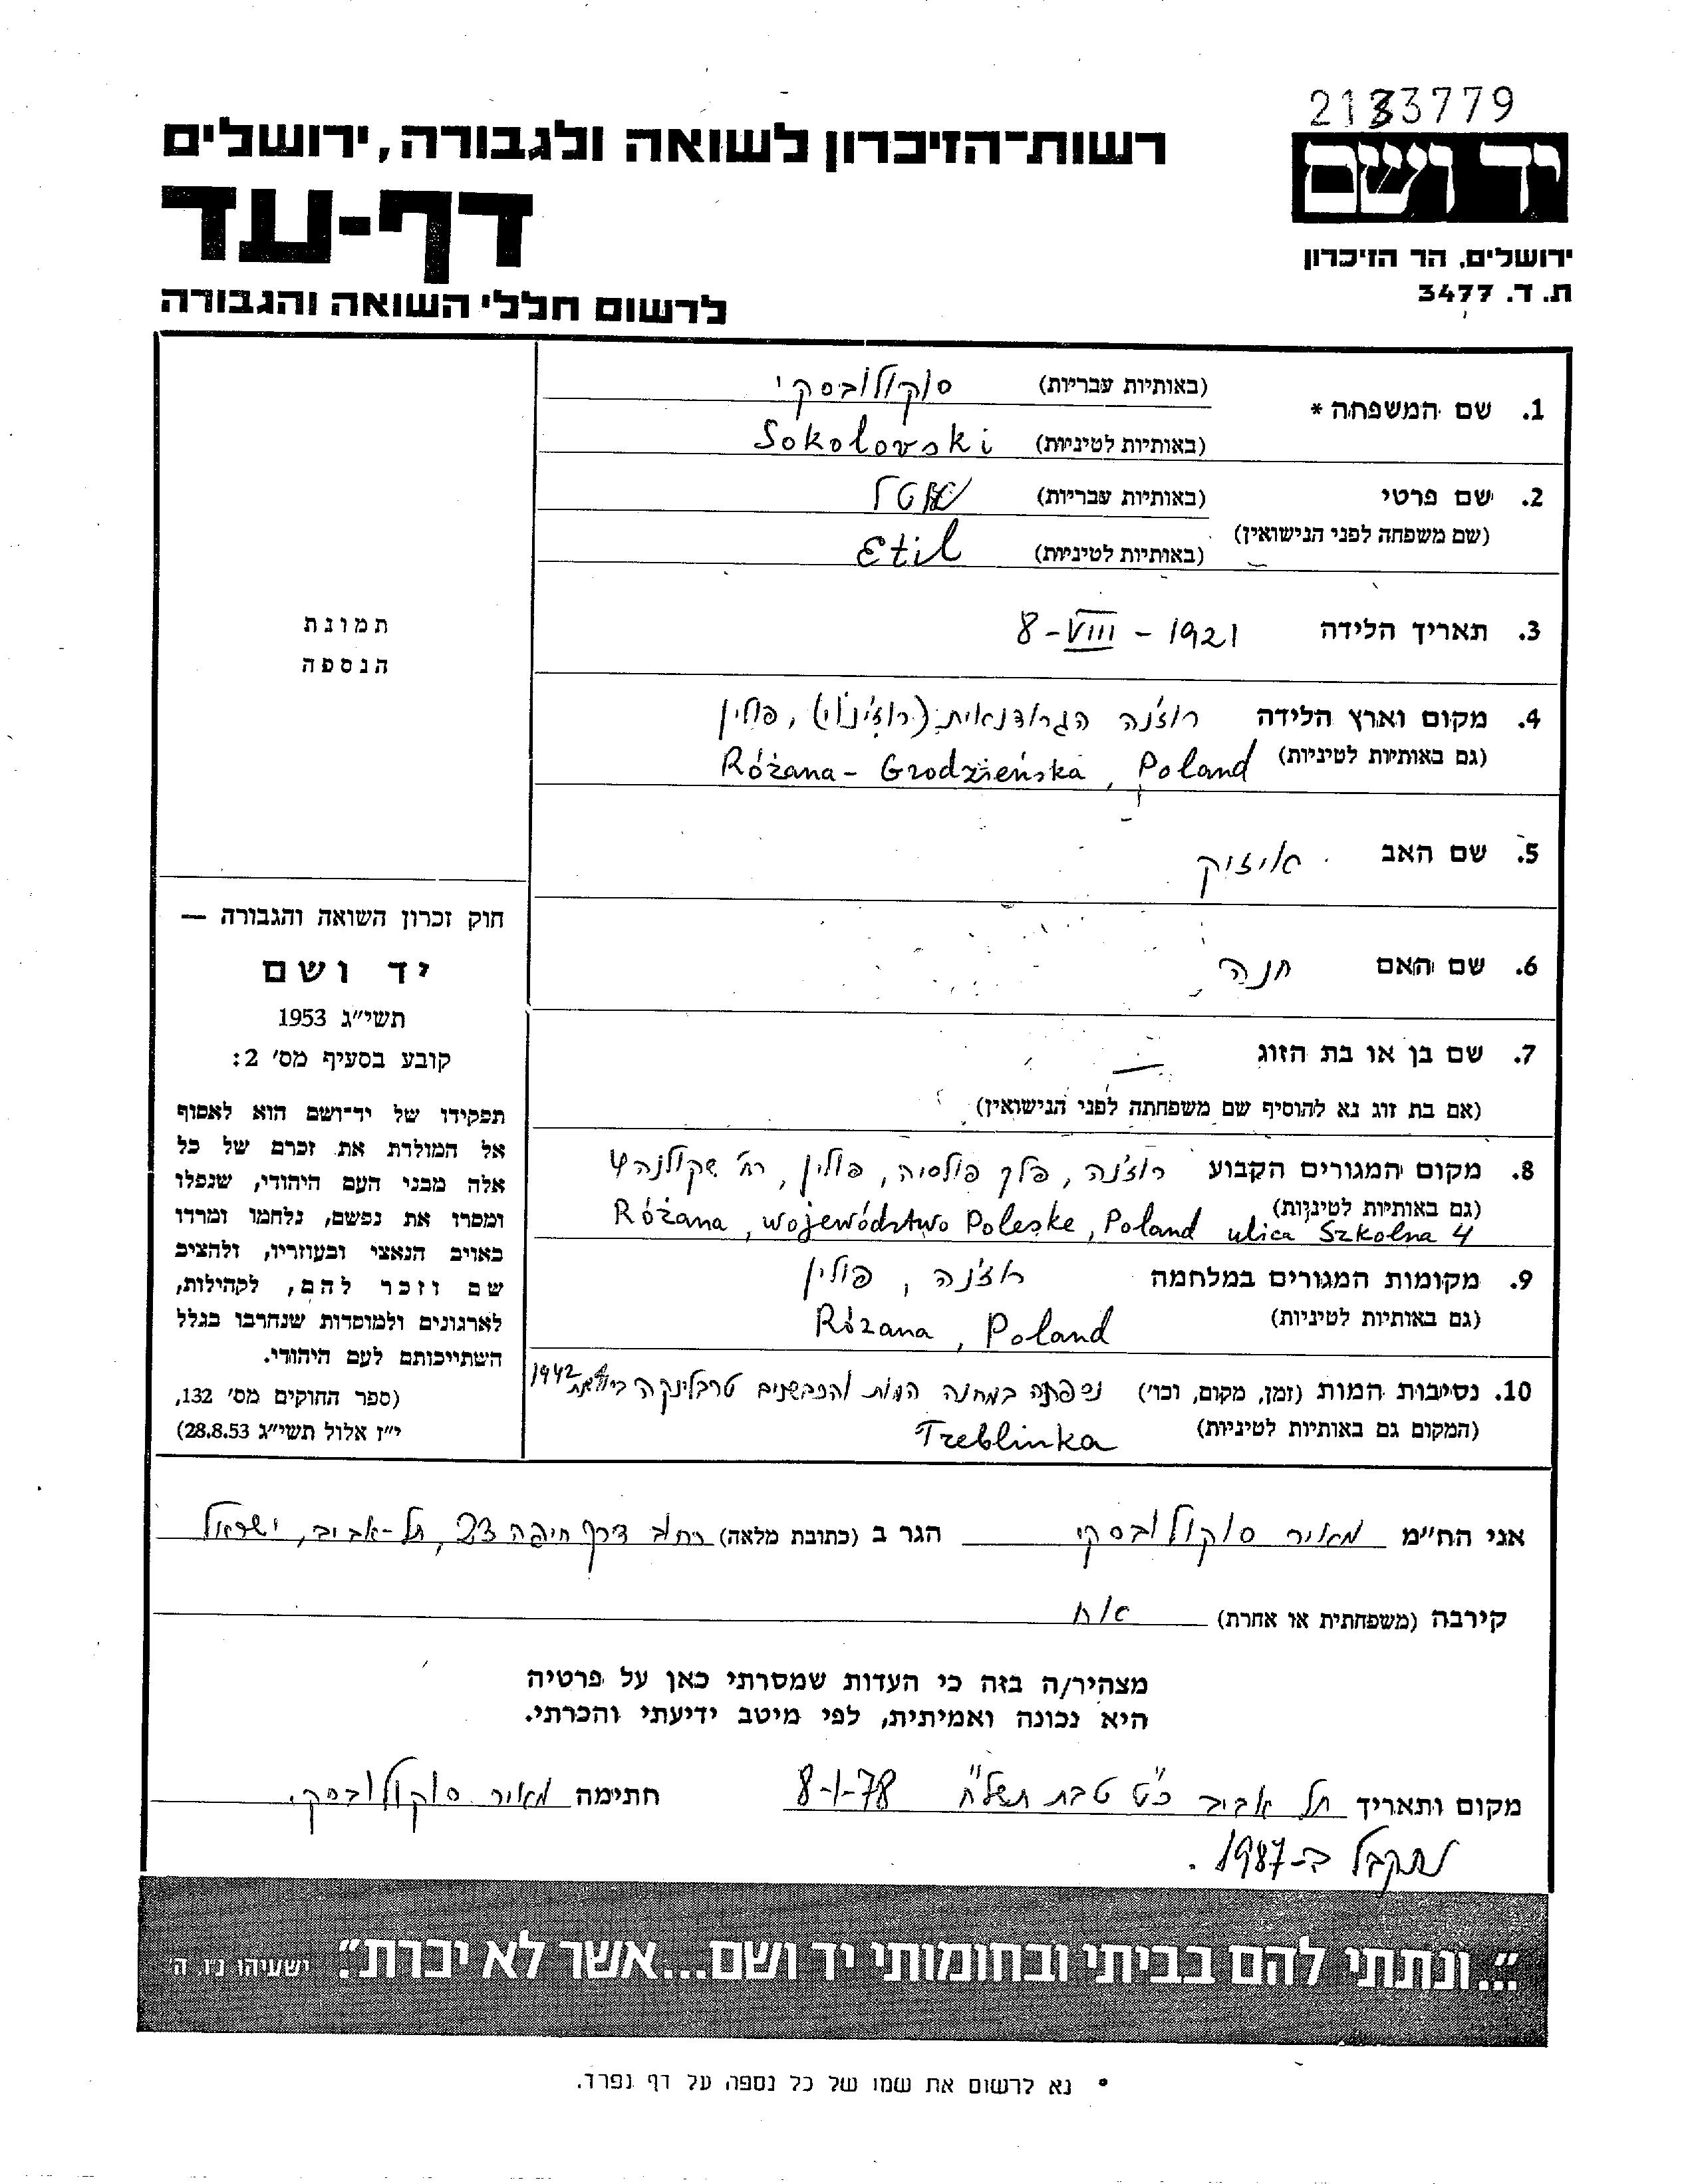 2133779
רשות־הזיכרון לשואה ולגבורה, ירושלים
יד ושם
דף-עד
ירושלים, הר הזיכרון
ת. ד. 3477
לרשום חללי השואה והגבורה
1. שם המשפחה * (באותיות עבריות) סוקולובסקי
(באותיות לטיניות) Sokolovski
2. שם פרטי (באותיות עבריות)
(שם משפחה לפני הנישואין) (באותיות לטיניות) Etil
3. תאריך הלידה 8-VIII-1921
4. מקום וארץ הלידה רוז'נה הגרודנאית (רוז'ינוי), פולין
(גם באותיות לטיניות) Różana - Grodzieńska, Poland
5. שם האב אייזיק
6. שם האם חנה
7. שם בן או בת הזוג —
(אם בת זוג נא להוסיף שם משפחתה לפני הנישואין)
8. מקום המגורים הקבוע רוז'נה, פלך פולסיה, פולין, רח' שקולנה 4
(גם באותיות לטיניות) Różana, województwo Poleske, Poland ulica Szkolna 4
9. מקומות המגורים במלחמה רוז'נה, פולין
(גם באותיות לטיניות) Różana, Poland
10. נסיבות המות (זמן, מקום, וכו') נספתה במחנה המות והכבשנים טרבלינקה 1942
(המקום גם באותיות לטיניות) Treblinka
תמונת
הנספה
חוק זכרון השואה והגבורה —
יד ושם
תשי״ג 1953
קובע בסעיף מס' 2:
תפקידו של יד־ושם הוא לאסוף
אל המולדת את זכרם של כל
אלה מבני העם היהודי, שנפלו
ומסרו את נפשם, נלחמו ומרדו
באויב הנאצי ובעוזריו, ולהציב
שם וזכר להם, לקהילות,
לארגונים ולמוסדות שנחרבו בגלל
השתייכותם לעם היהודי.
(ספר החוקים מס' 132,
י״ז אלול תשי״ג 28.8.53)
אני הח״מ מאיר סוקולובסקי הגר ב (כתובת מלאה) רחוב דרך חיפה 23, תל-אביב, ישראל
קירבה (משפחתית או אחרת) אח
מצהיר/ה בזה כי העדות שמסרתי כאן על פרטיה
היא נכונה ואמיתית, לפי מיטב ידיעתי והכרתי.
מקום ותאריך תל אביב כ"ט טבת תשל"ח 8-1-78 חתימה מאיר סוקולובסקי.
נתקבל ב-1987.
״...ונתתי להם בביתי ובחומותי יד ושם...אשר לא יכרת״. ישעיהו נ״ו, ה'
* נא לרשום את שמו של כל נספה על דף נפרד.